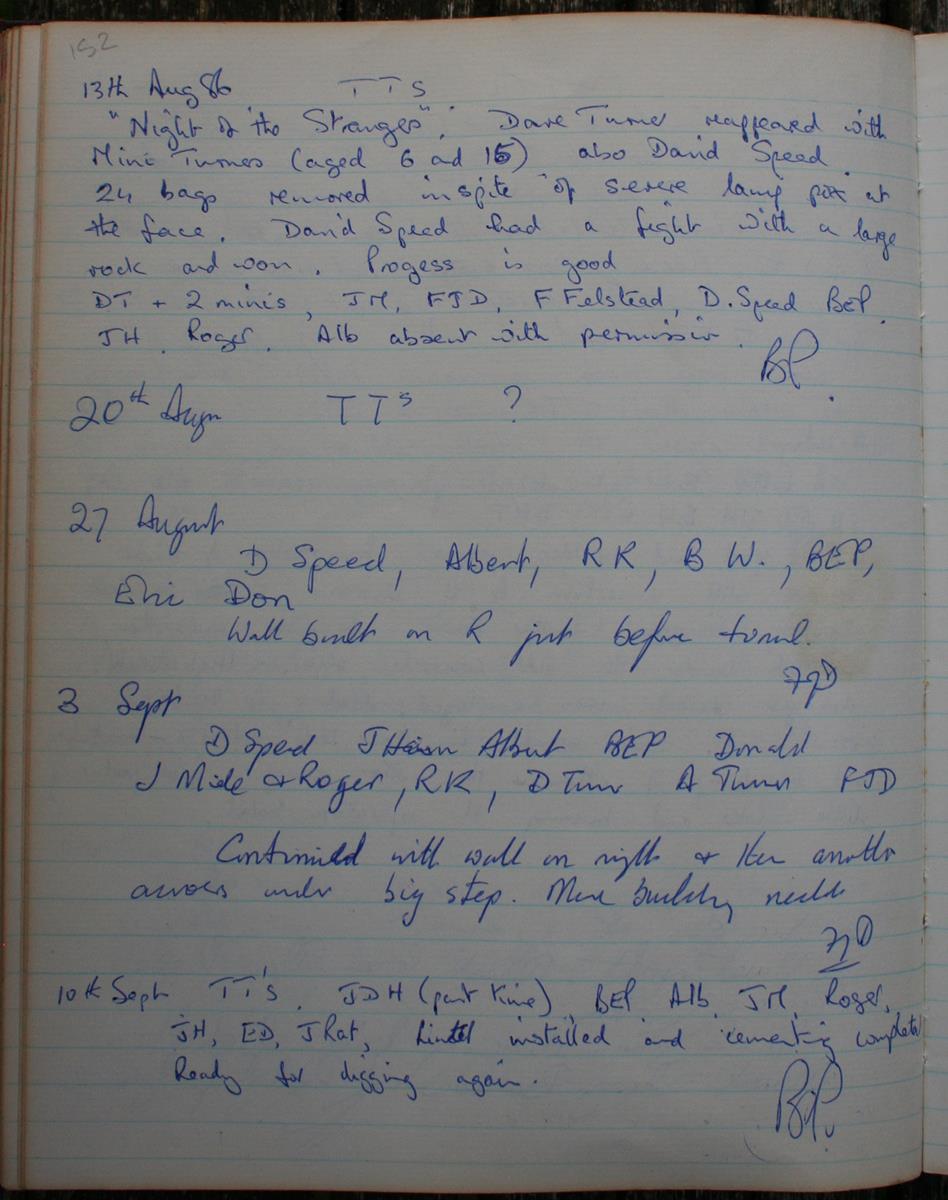 152
13th Aug 86 TTS
"Night of the Stranges". Dave Turner reappeared with
Mini Turners (aged 6 and 15) also David Speed.
24 bags removed inspite of severe lamp pox at
the face. David Speed had a fight with a large
rock and won. Progess is good
DT + 2 minis, JM, FJD, F Felstead, D. Speed BEP.
JH. Roger. Alb absent with permission.
BP.
20th Augn TTs ?
27 August
D Speed, Albert, RK, B W., BEP,
Eric Don
Wall built on R just before tunnel.
FJD
3 Sept
D Speed Albert BEP Donald
J Mide & Roger, RK, D Turner A Turner FJD
Continued with wall on right & then another
across under big step. More building needed
FJD
10th Sept TT's. JDH (part time), BEP, Alb, JM, Roger,
JH, ED, JRat, Lintel installed and cementing completed
Ready for digging again.
B.P.